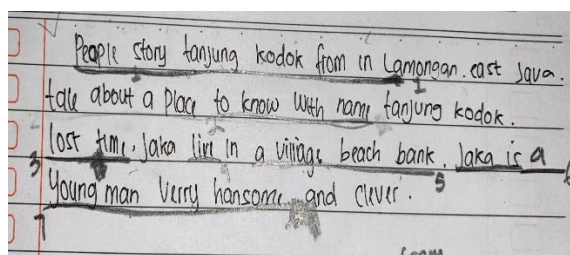 People story tanjung kodok from in Lamongan. east Java.
tale about a place to know with name tanjung kodok.
lost time. Jaka live in a village beach bank. Jaka is a
young man verry hansome and clever.